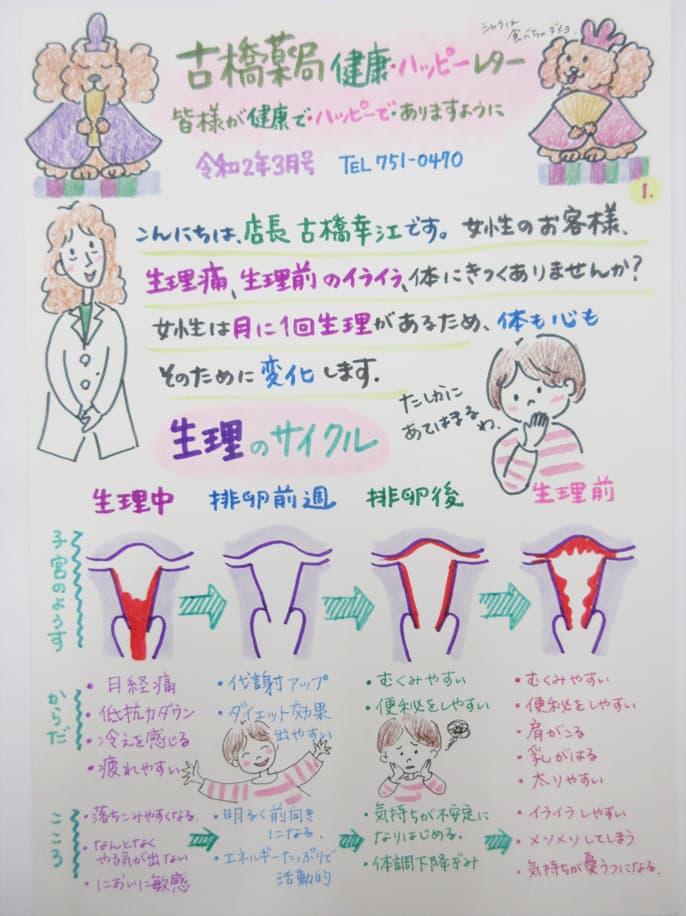 シャクは
食べちゃダメヨ.
古橋薬局 健康・ハッピーレター
皆様が健康で・ハッピーで・ありますように
令和2年3月号 TEL 751-0470
1.
こんにちは、店長 古橋幸江です。女性のお客様、
生理痛、生理前のイライラ、体にきつくありませんか?
女性は月に1回生理があるため、体も心も
そのために変化します.
たしかに
あてはまる
わ.
生理のサイクル
生理中 排卵前週 排卵後 生理前
子宮のようす
からだ
・月経痛
・低抗力ダウン
・冷えを感じる
・疲れやすい
・代謝アップ
・ダイエット効果
出やすい
・むくみやすい
・便秘をしやすい
・むくみやすい
・便秘をしやすい
・肩がこる
・乳がはる
・太りやすい
こころ
・落ちこみやすくなる.
・なんとなく
やる気が出ない
・においに敏感
・明るく前向き
になる.
・エネルギーたっぷりで
活動的
・気持ちが不安定に
なりはじめる.
・体調下降ぎみ
・イライラしやすい
・メソメソしてしまう
・気持ちが憂うつになる.